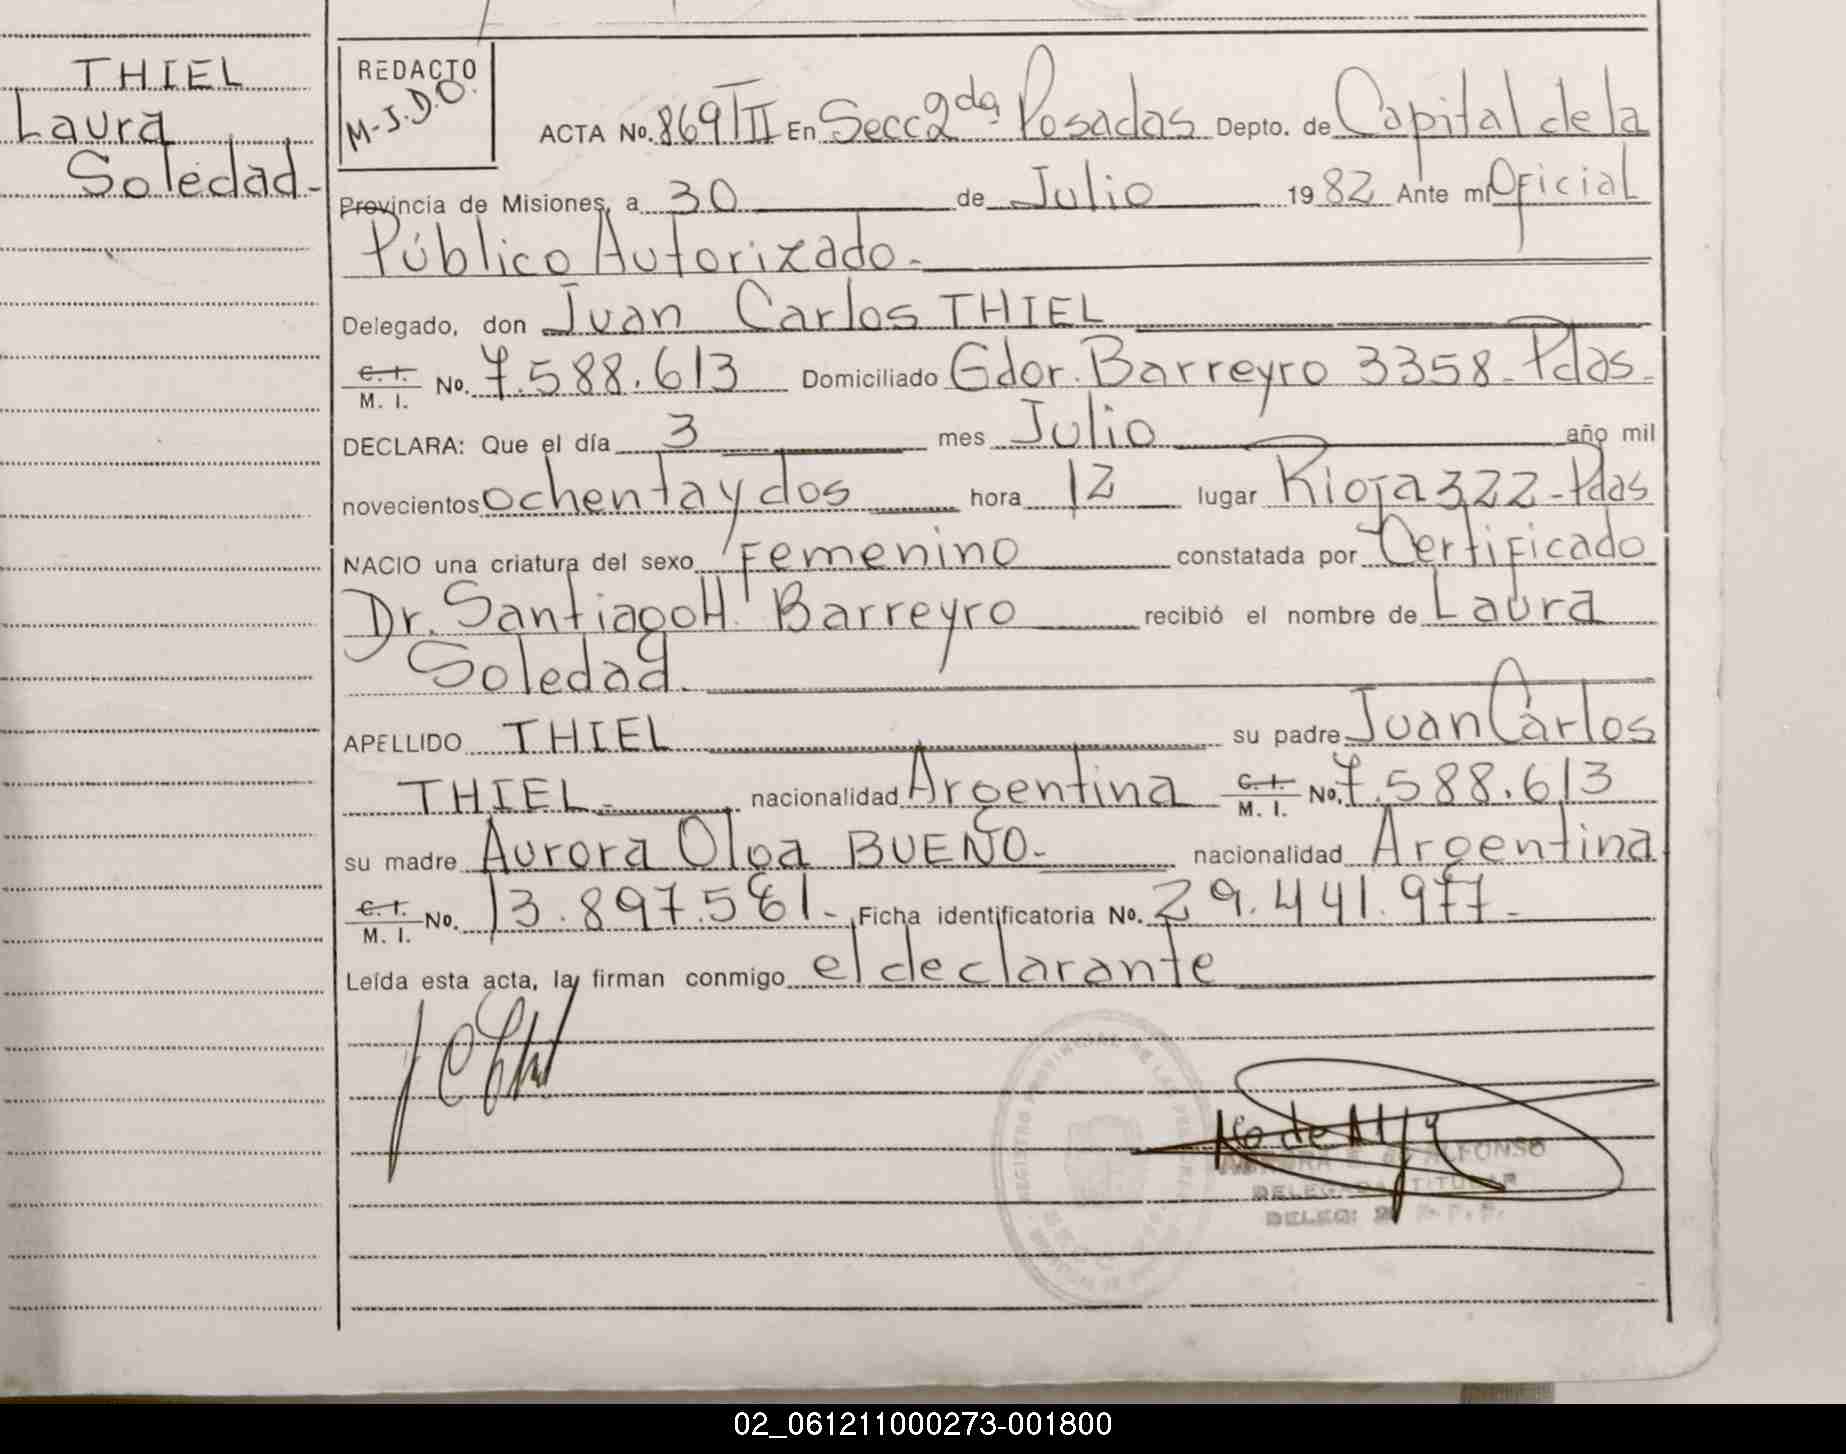 THIEL
Laura
Soledad-
REDACTO
M-J.D.O.
ACTA No. 869/TII En Secc 2da Posadas Depto. de Capital de la
Provincia de Misiones, a 30 de Julio 1982 Ante mí Oficial
Público Autorizado.-
Delegado, don Juan Carlos THIEL
C. I.
M. I. No. 7.588.613 Domiciliado Gdor. Barreyro 3358-Pdas-
DECLARA: Que el día 3 mes Julio año mil
novecientos ochenta y dos hora 12 lugar Rioja 322-Pdas
NACIO una criatura del sexo Femenino constatada por Certificado
Dr. Santiago H. Barreyro recibió el nombre de Laura
Soledad.
APELLIDO THIEL su padre Juan Carlos
THIEL.- nacionalidad Argentina C. I.
M. I. No. 7.588.613
su madre Aurora Olga BUENO.- nacionalidad Argentina
C. I.
M. I. No. 13.897.561.- Ficha identificatoria No. 29.441.977.-
Leída esta acta, la firman conmigo el declarante
REGISTRO PROVINCIAL DE LAS PERSONAS
DE ALFONSO
DELEGADA TITULAR
DELEG: 2
02_061211000273-001800